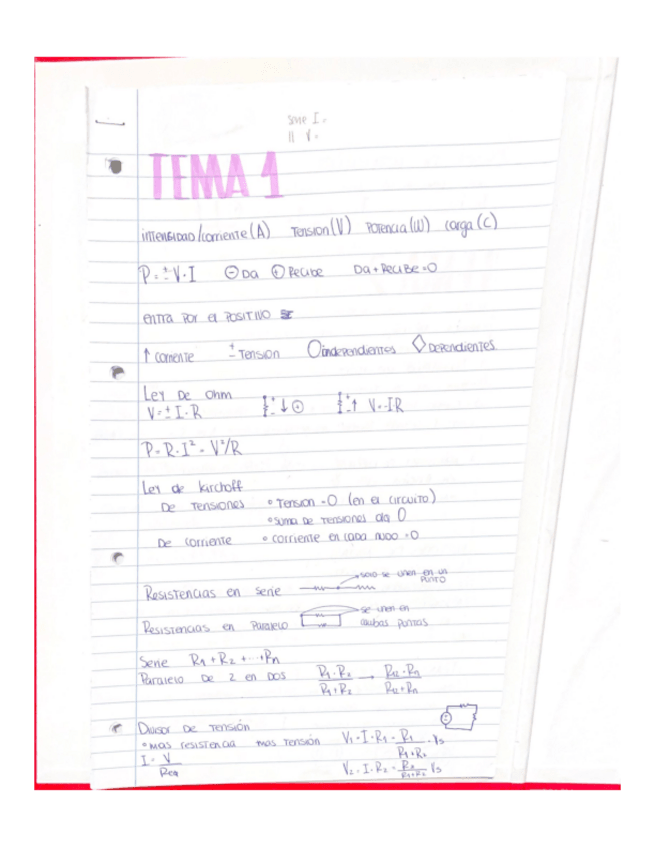 Serie I=
|| V=
TEMA 1
intensidad/corriente (A) Tension (V) Potencia (W) carga (C)
P = ± V·I ⊖ Da ⊕ Recibe Da + Recibe = 0
entra por el positivo
↑ corriente ± Tension ○ independientes ◇ Dependientes
Ley De Ohm
V = ± I·R ↓ ⊕ ↑ V=-IR
P = R·I² = V²/R
Ley de kirchoff
De Tensiones ∘ Tension = 0 (en el circuito)
∘ suma de tensiones da 0
De corriente ∘ corriente en cada nudo = 0
Resistencias en serie solo se unen en un punto
Resistencias en Paralelo se unen en ambas puntas
Serie R1 + R2 + ... + Rn
Paralelo De 2 en Dos R1·R2/R1+R2 → R12·Rn/R12+Rn
Divisor De Tensión
∘ mas resistencia mas tensión V1 = I·R1 = R1/R1+R2 · Vs
I = V/Req V2 = I·R2 = R2/R1+R2 Vs